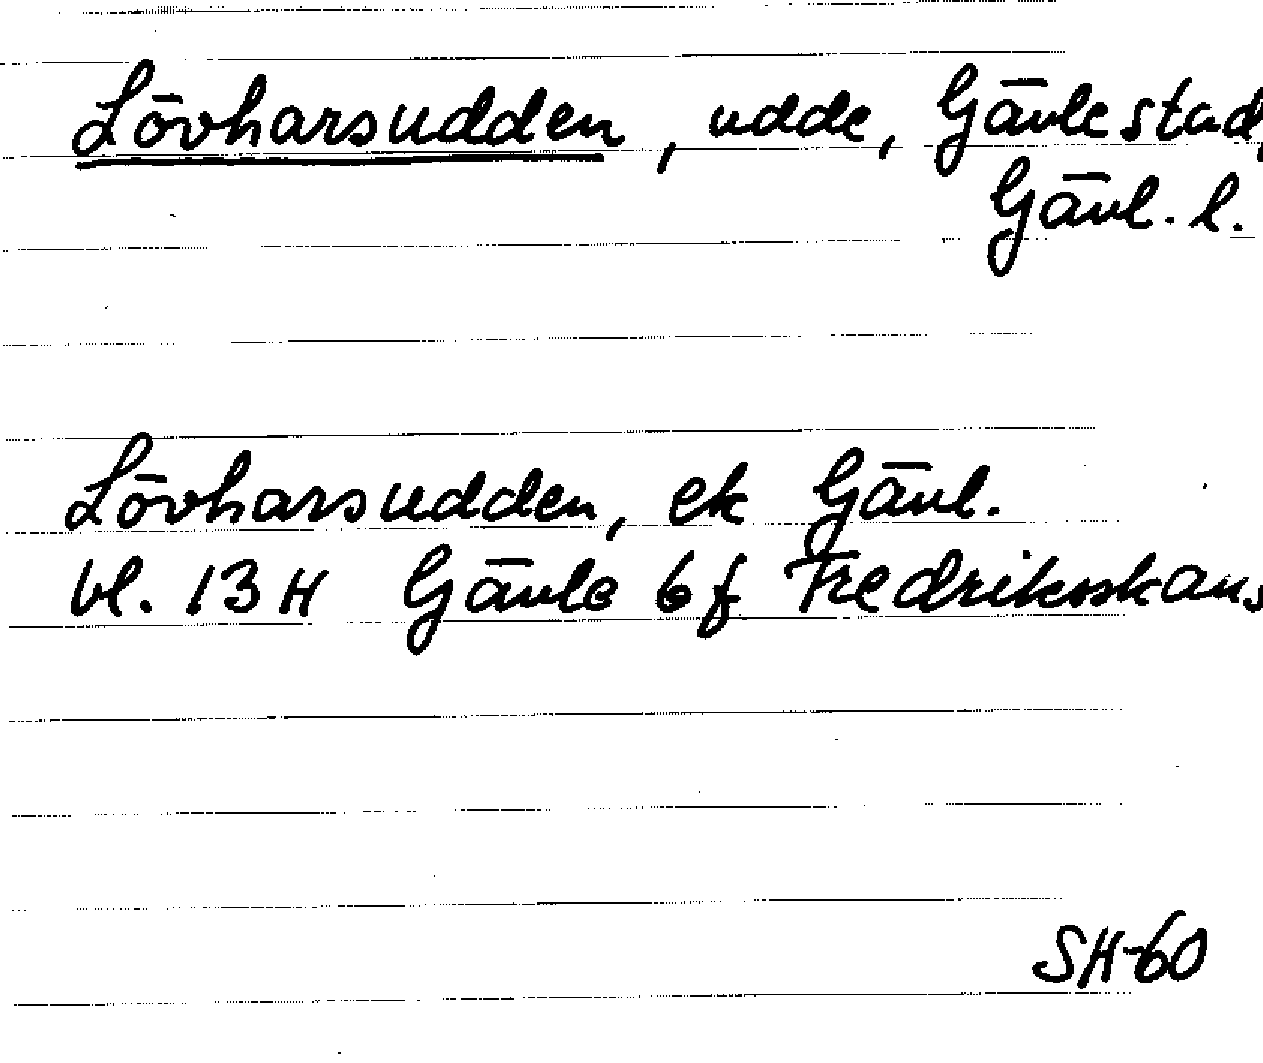 Lövharsudden, udde, Gävle stad,
Gävl. l.
Lövharsudden, ek Gävl.
bl. 13 H Gävle 6 f Fredriksskans
SH-60